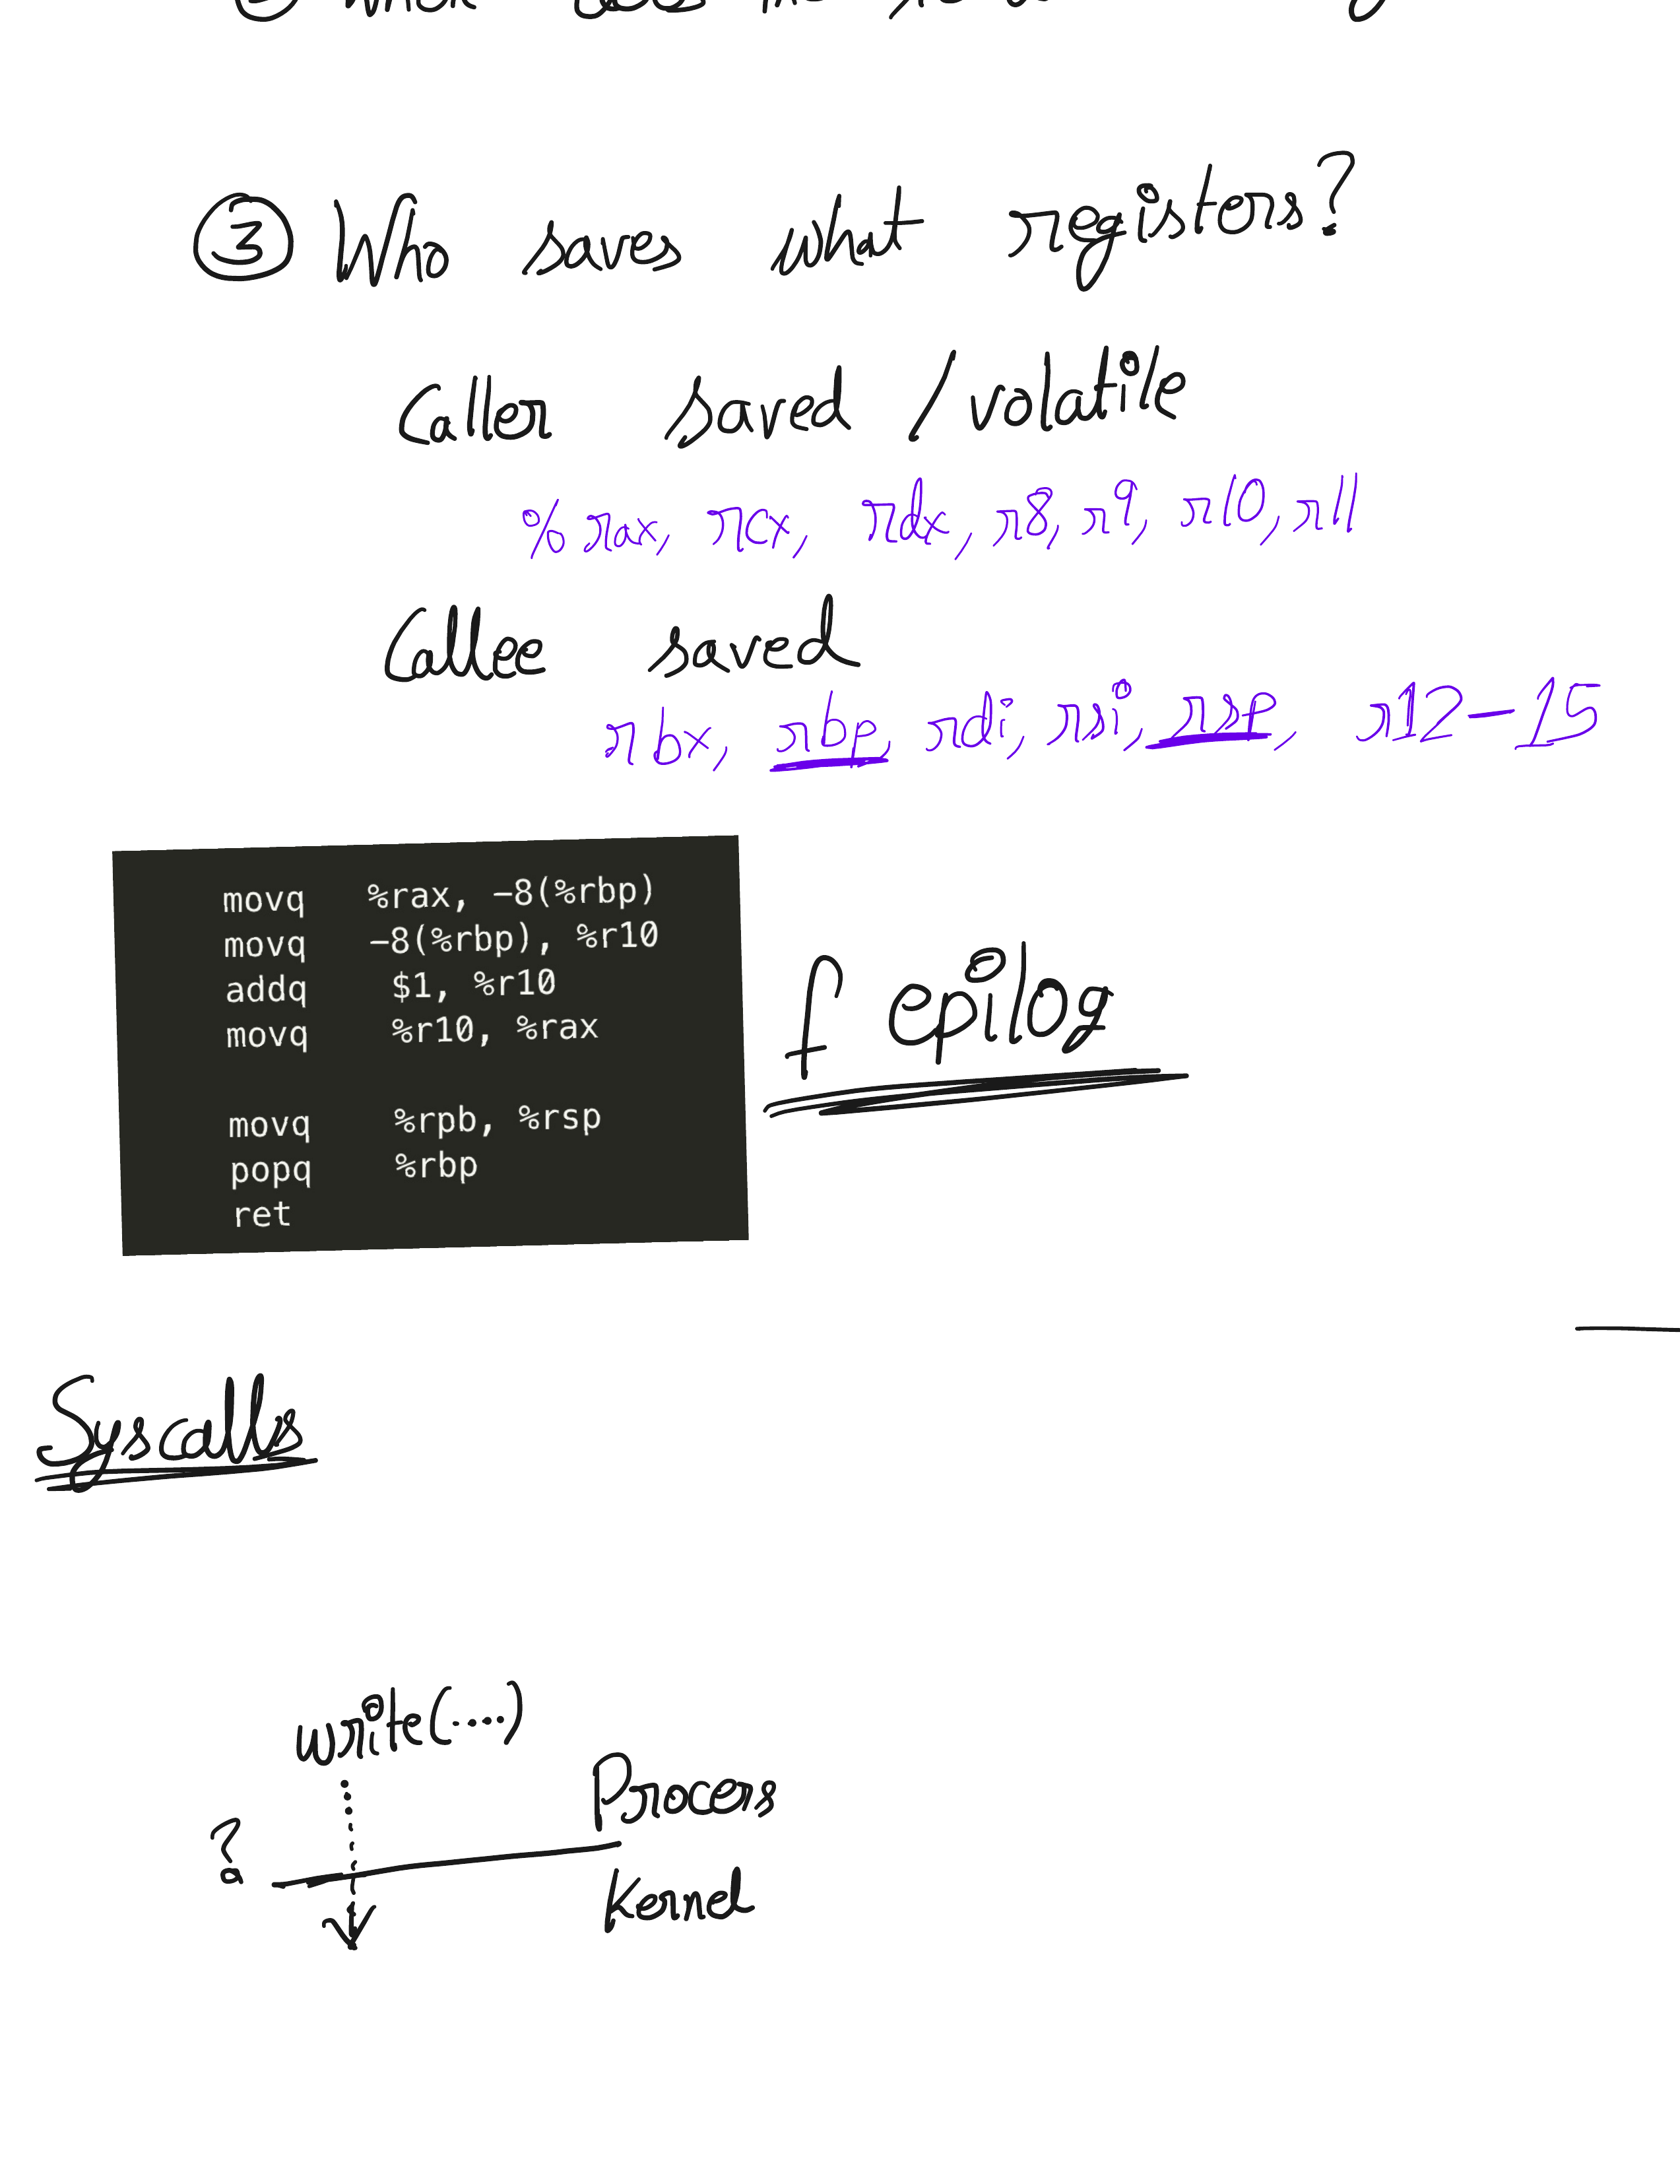 ③ Who saves what registors?
Caller saved / volatile
% rax, rcx, rdx, r8, r9, r10, r11
Callee saved
rbx, rbp, rdi, rsi, rsp, r12-15
movq %rax, -8(%rbp)
movq -8(%rbp), %r10
addq $1, %r10
movq %r10, %rax
movq %rpb, %rsp
popq %rbp
ret
f epilog
Syscalls
write(....)
Process
?
Kernel